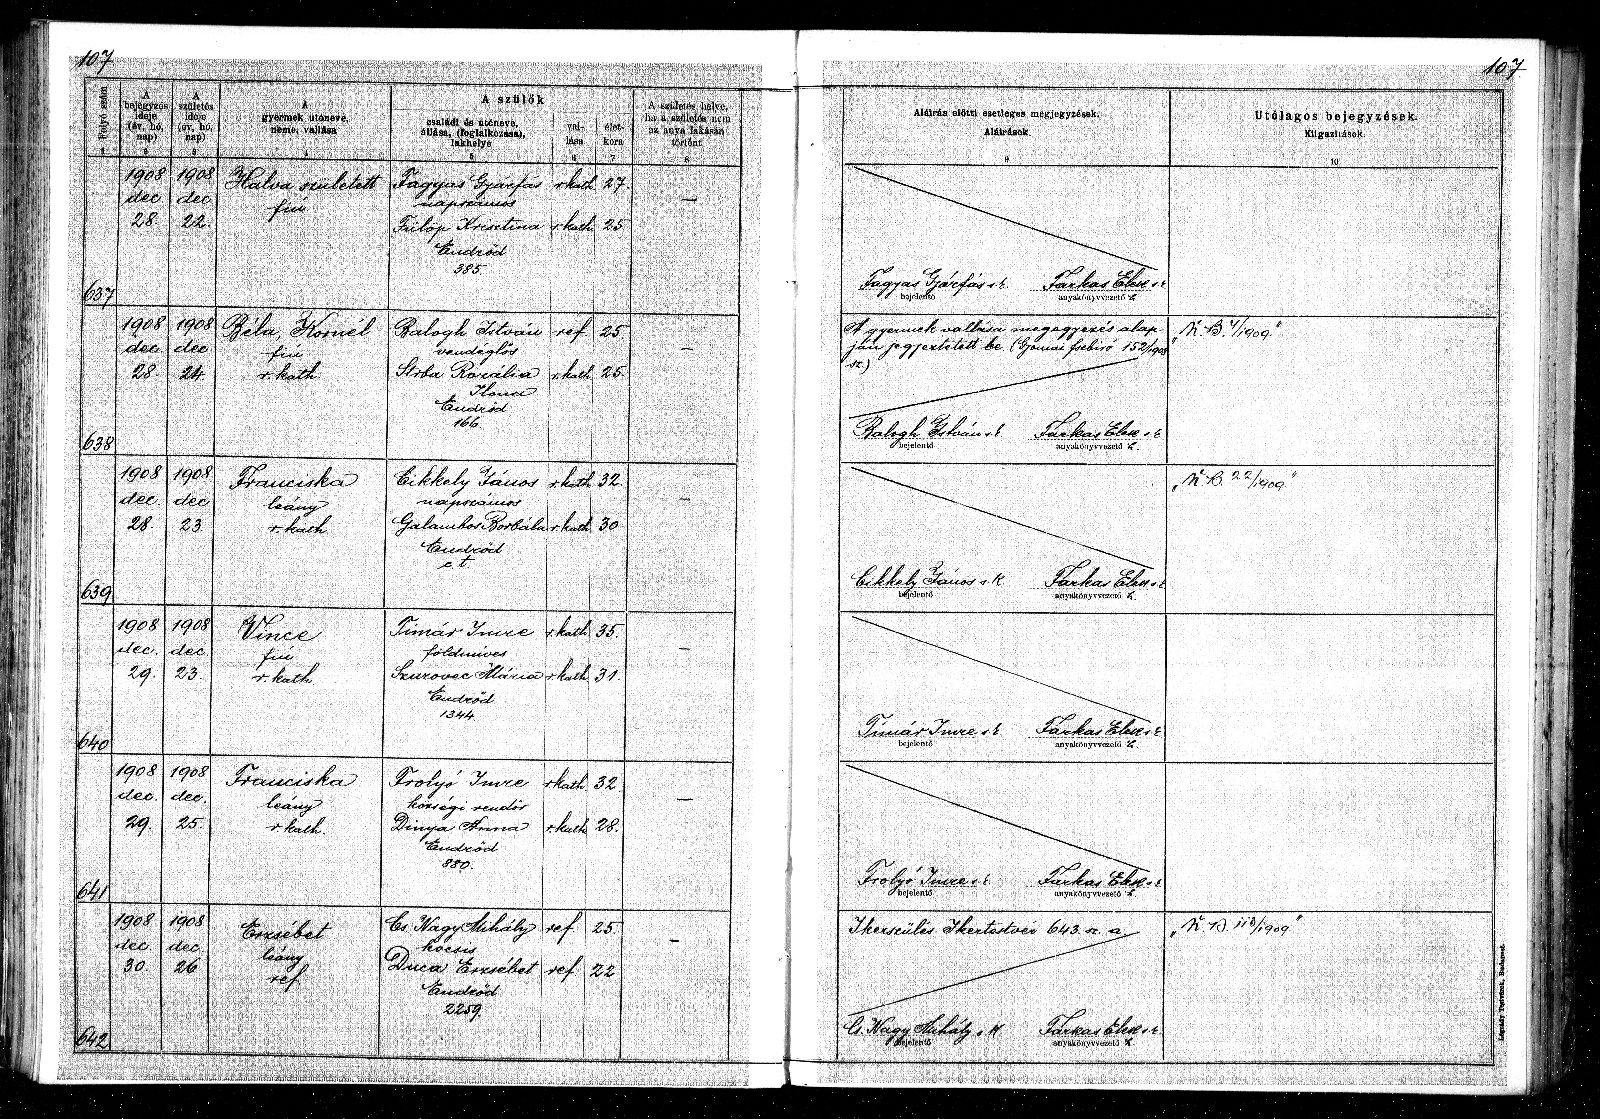 107
107
Folyó szám
A bejegyzés ideje (év, hó, nap)
A születés ideje (év, hó, nap)
A gyermek utóneve, neme, vallása
A szülők
családi és utóneve, állása, (foglalkozása), lakhelye
vallása
életkora
A születés helye, ha a születés nem az anya lakásán történt
Aláírás előtti esetleges megjegyzések.
Aláírások.
Utólagos bejegyzések.
Kiigazítások.
1 2 3 4 5 6 7 8 9 10
1908 1908 Halva született Fagyas Gyárfás r. kath. 27.
dec dec fiú napszámos —
28. 22. Fülöp Krisztina r. kath. 25
Endrőd
385.
637
Fagyas Gyárfás s. k. Farkas Elek s. k.
bejelentő anyakönyvvezető h.
1908 1908 Béla, Kornél Balogh István ref 25
dec dec fiú vendéglős —
28. 24. r. kath. Strba Rozália r. kath. 25.
Ilona
Endrőd
166.
638
A gyermek vallása megegyezés alap-
ján jegyeztetett be. (Gyomai főbiró 152/1908
sz.)
Balogh István s. k. Farkas Elek s. k.
bejelentő anyakönyvvezető h.
1908 1908 Franciska Cikkely János r. kath. 32.
dec. dec leány napszámos —
28. 23. r. kath. Galambos Borbála r. kath. 30
Endrőd
c. t.
639
„K. B. 22/1909"
Cikkely János s. k. Farkas Elek s. k.
bejelentő anyakönyvvezető h.
1908 1908 Vince Timár Imre r. kath. 35.
dec. dec. fiú földmíves —
29. 23. r. kath. Szurovec Mária r. kath. 31.
Endrőd
1344.
640
Timár Imre s. k. Farkas Elek s. k.
bejelentő anyakönyvvezető h.
1908 1908 Franciska Frolyó Imre r. kath. 32.
dec. dec. leány községi rendőr —
29. 25. r. kath. Dinya Anna r. kath. 28.
Endrőd
880.
641
Frolyó Imre s. k. Farkas Elek s. k.
bejelentő anyakönyvvezető h.
1908 1908 Erzsébet Cs. Nagy Mihály ref 25.
dec. dec. leány kocsis —
30. 26 ref Duca Erzsébet ref 22
Endrőd
2259.
642
Ikerszülés Ikertestvér 643. sz. a.
„K. B. 118/1909"
Cs. Nagy Mihály s. k. Farkas Elek s. k.
bejelentő anyakönyvvezető h.